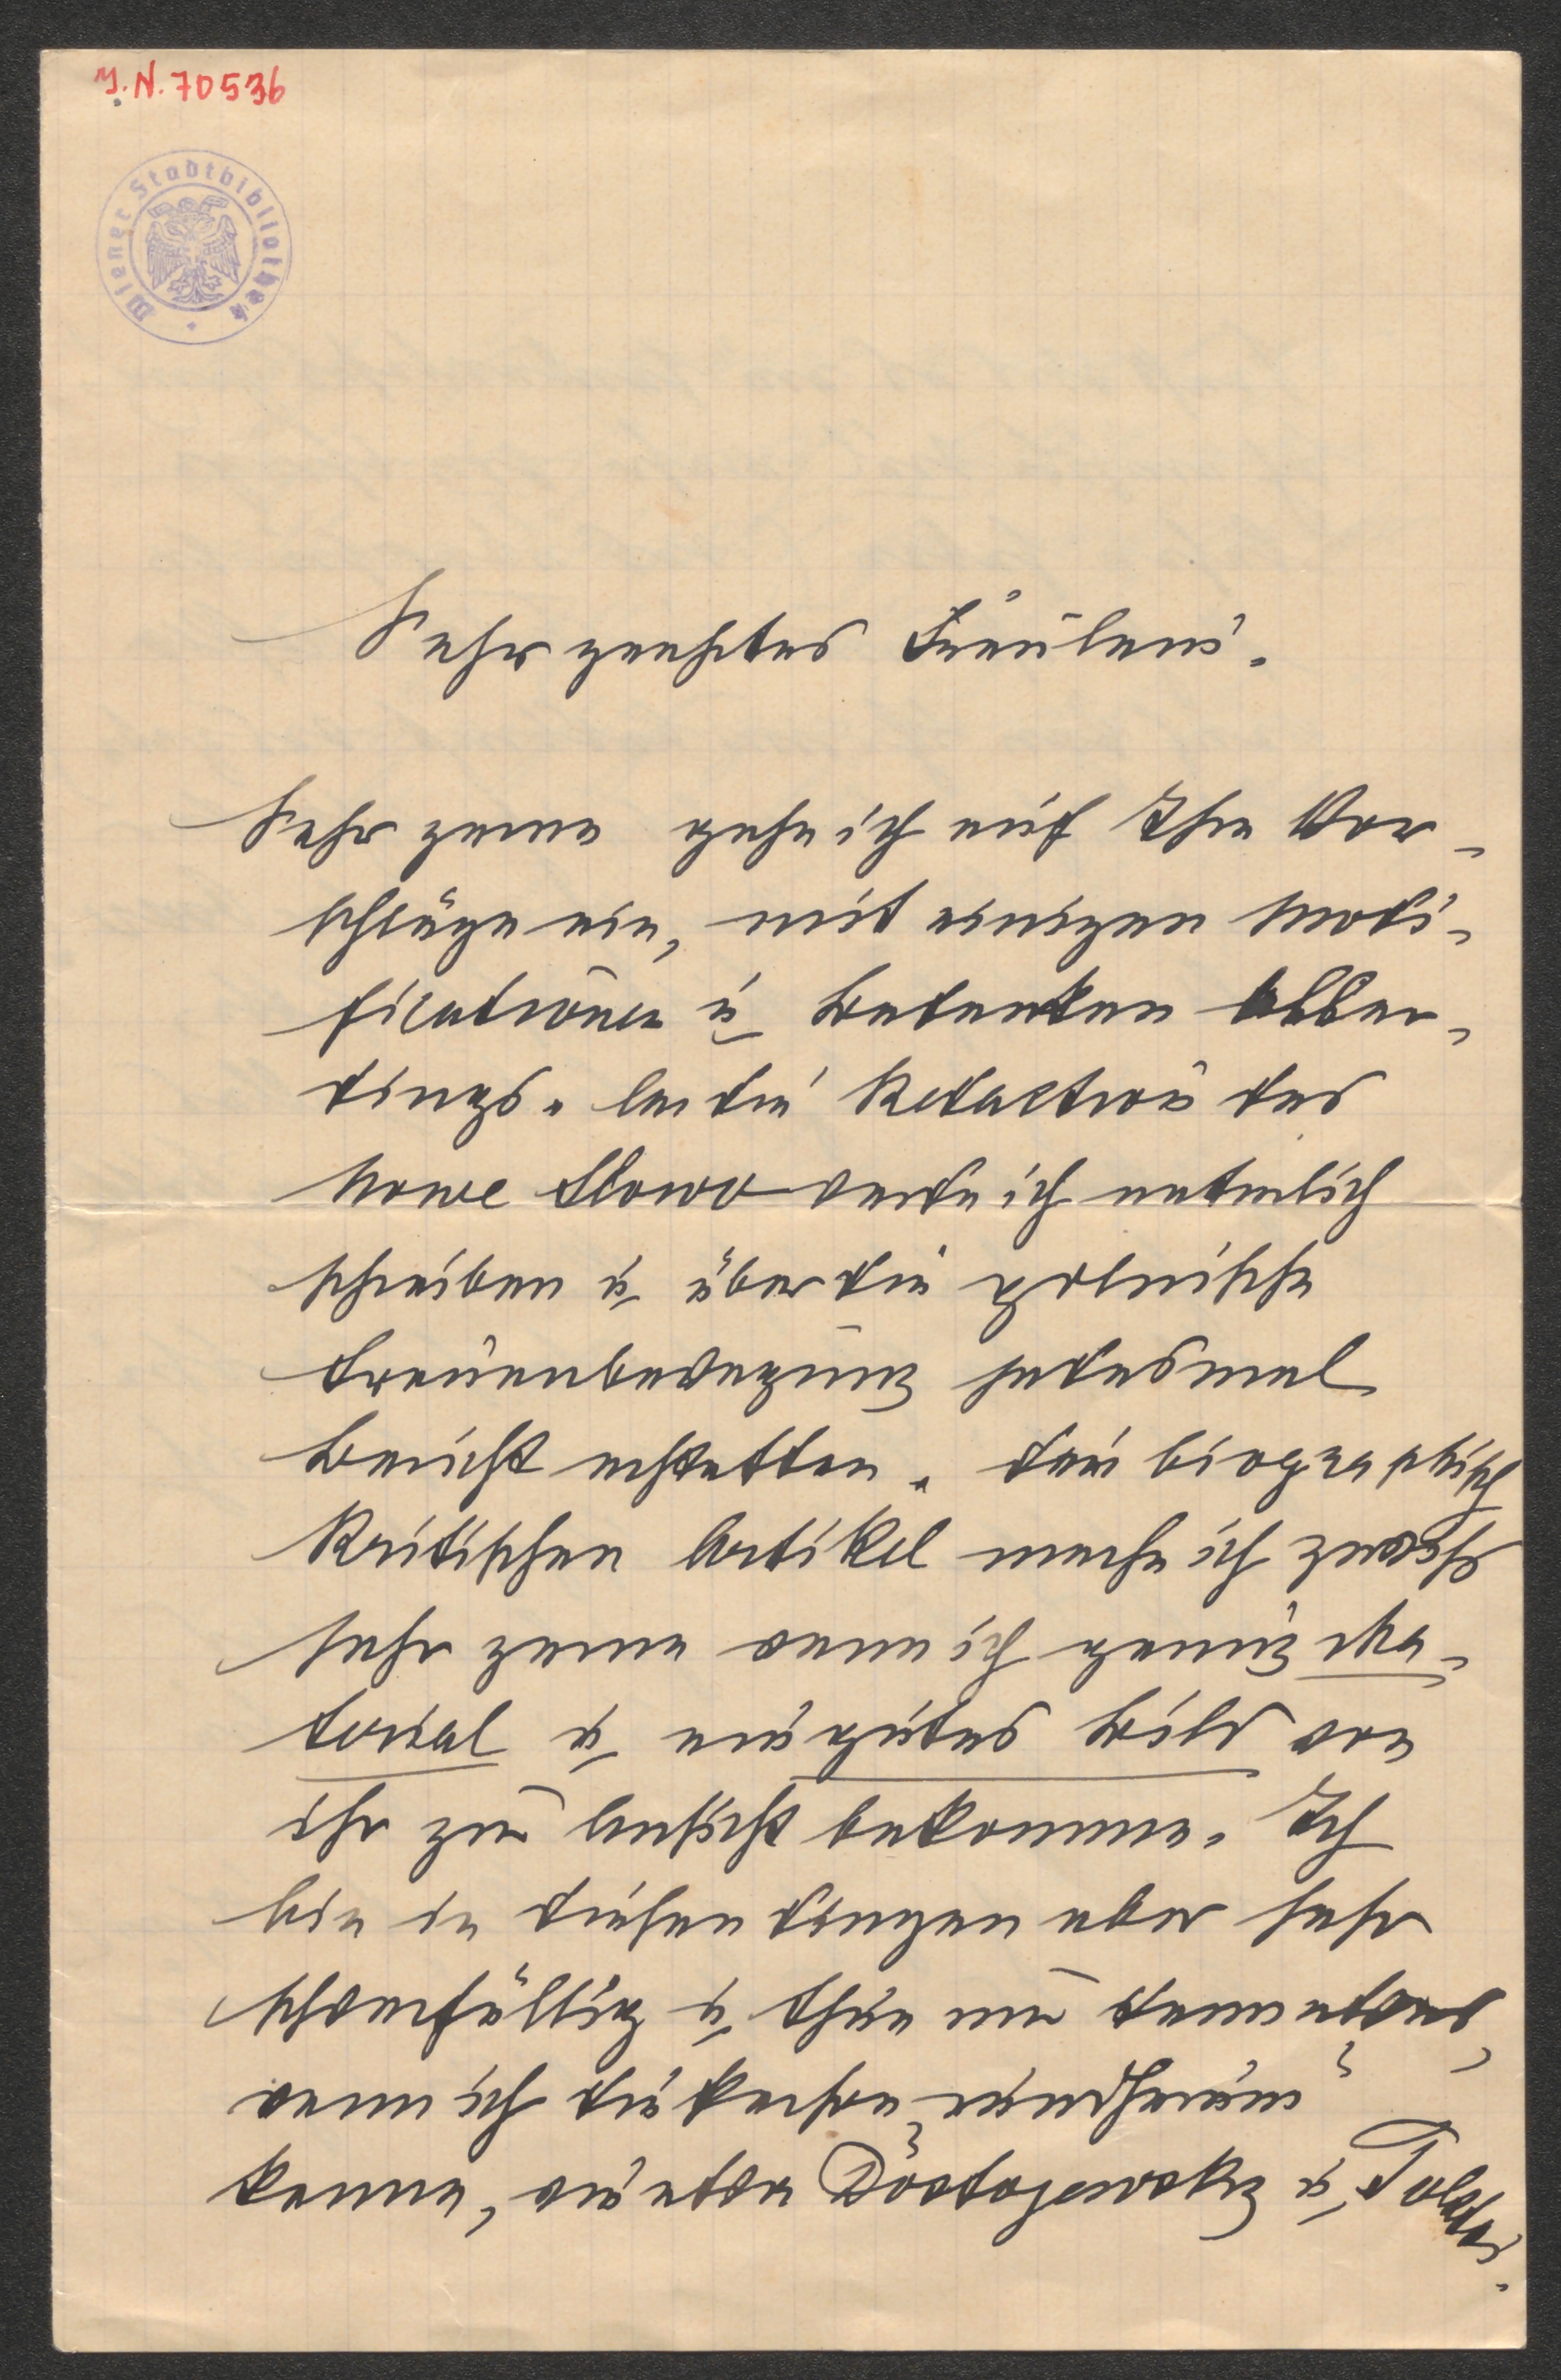 J.N. 70536
Wiener Stadtbibliothek
Sehr geehrtes Fräulein.
Sehr gerne gehe ich auf Ihre Vor-
schläge ein, mit einigen Modi-
ficationen u. Bedenken aller-
dings. An die Redaction des
Nowe Słowo werde ich natürlich
schreiben u. über die polnische
Frauenbewegung jedesmal
Bericht erstatten. Den biographisch
kritischen Artikel mache ich
sehr gerne wenn ich genug Ma-
terial u. ein gutes Bild von
ihr zur Ansicht bekomme. Ich
bin in diesen Dingen aber sehr
schwerfällig u. thue nur dann etwas,
wenn ich die Person
kenne, wie etwa Dostojewsky u. Tolstoi.